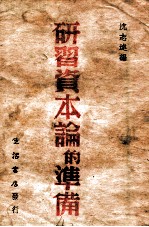 沈志遠編
研習資本論的準備
生活書店發行